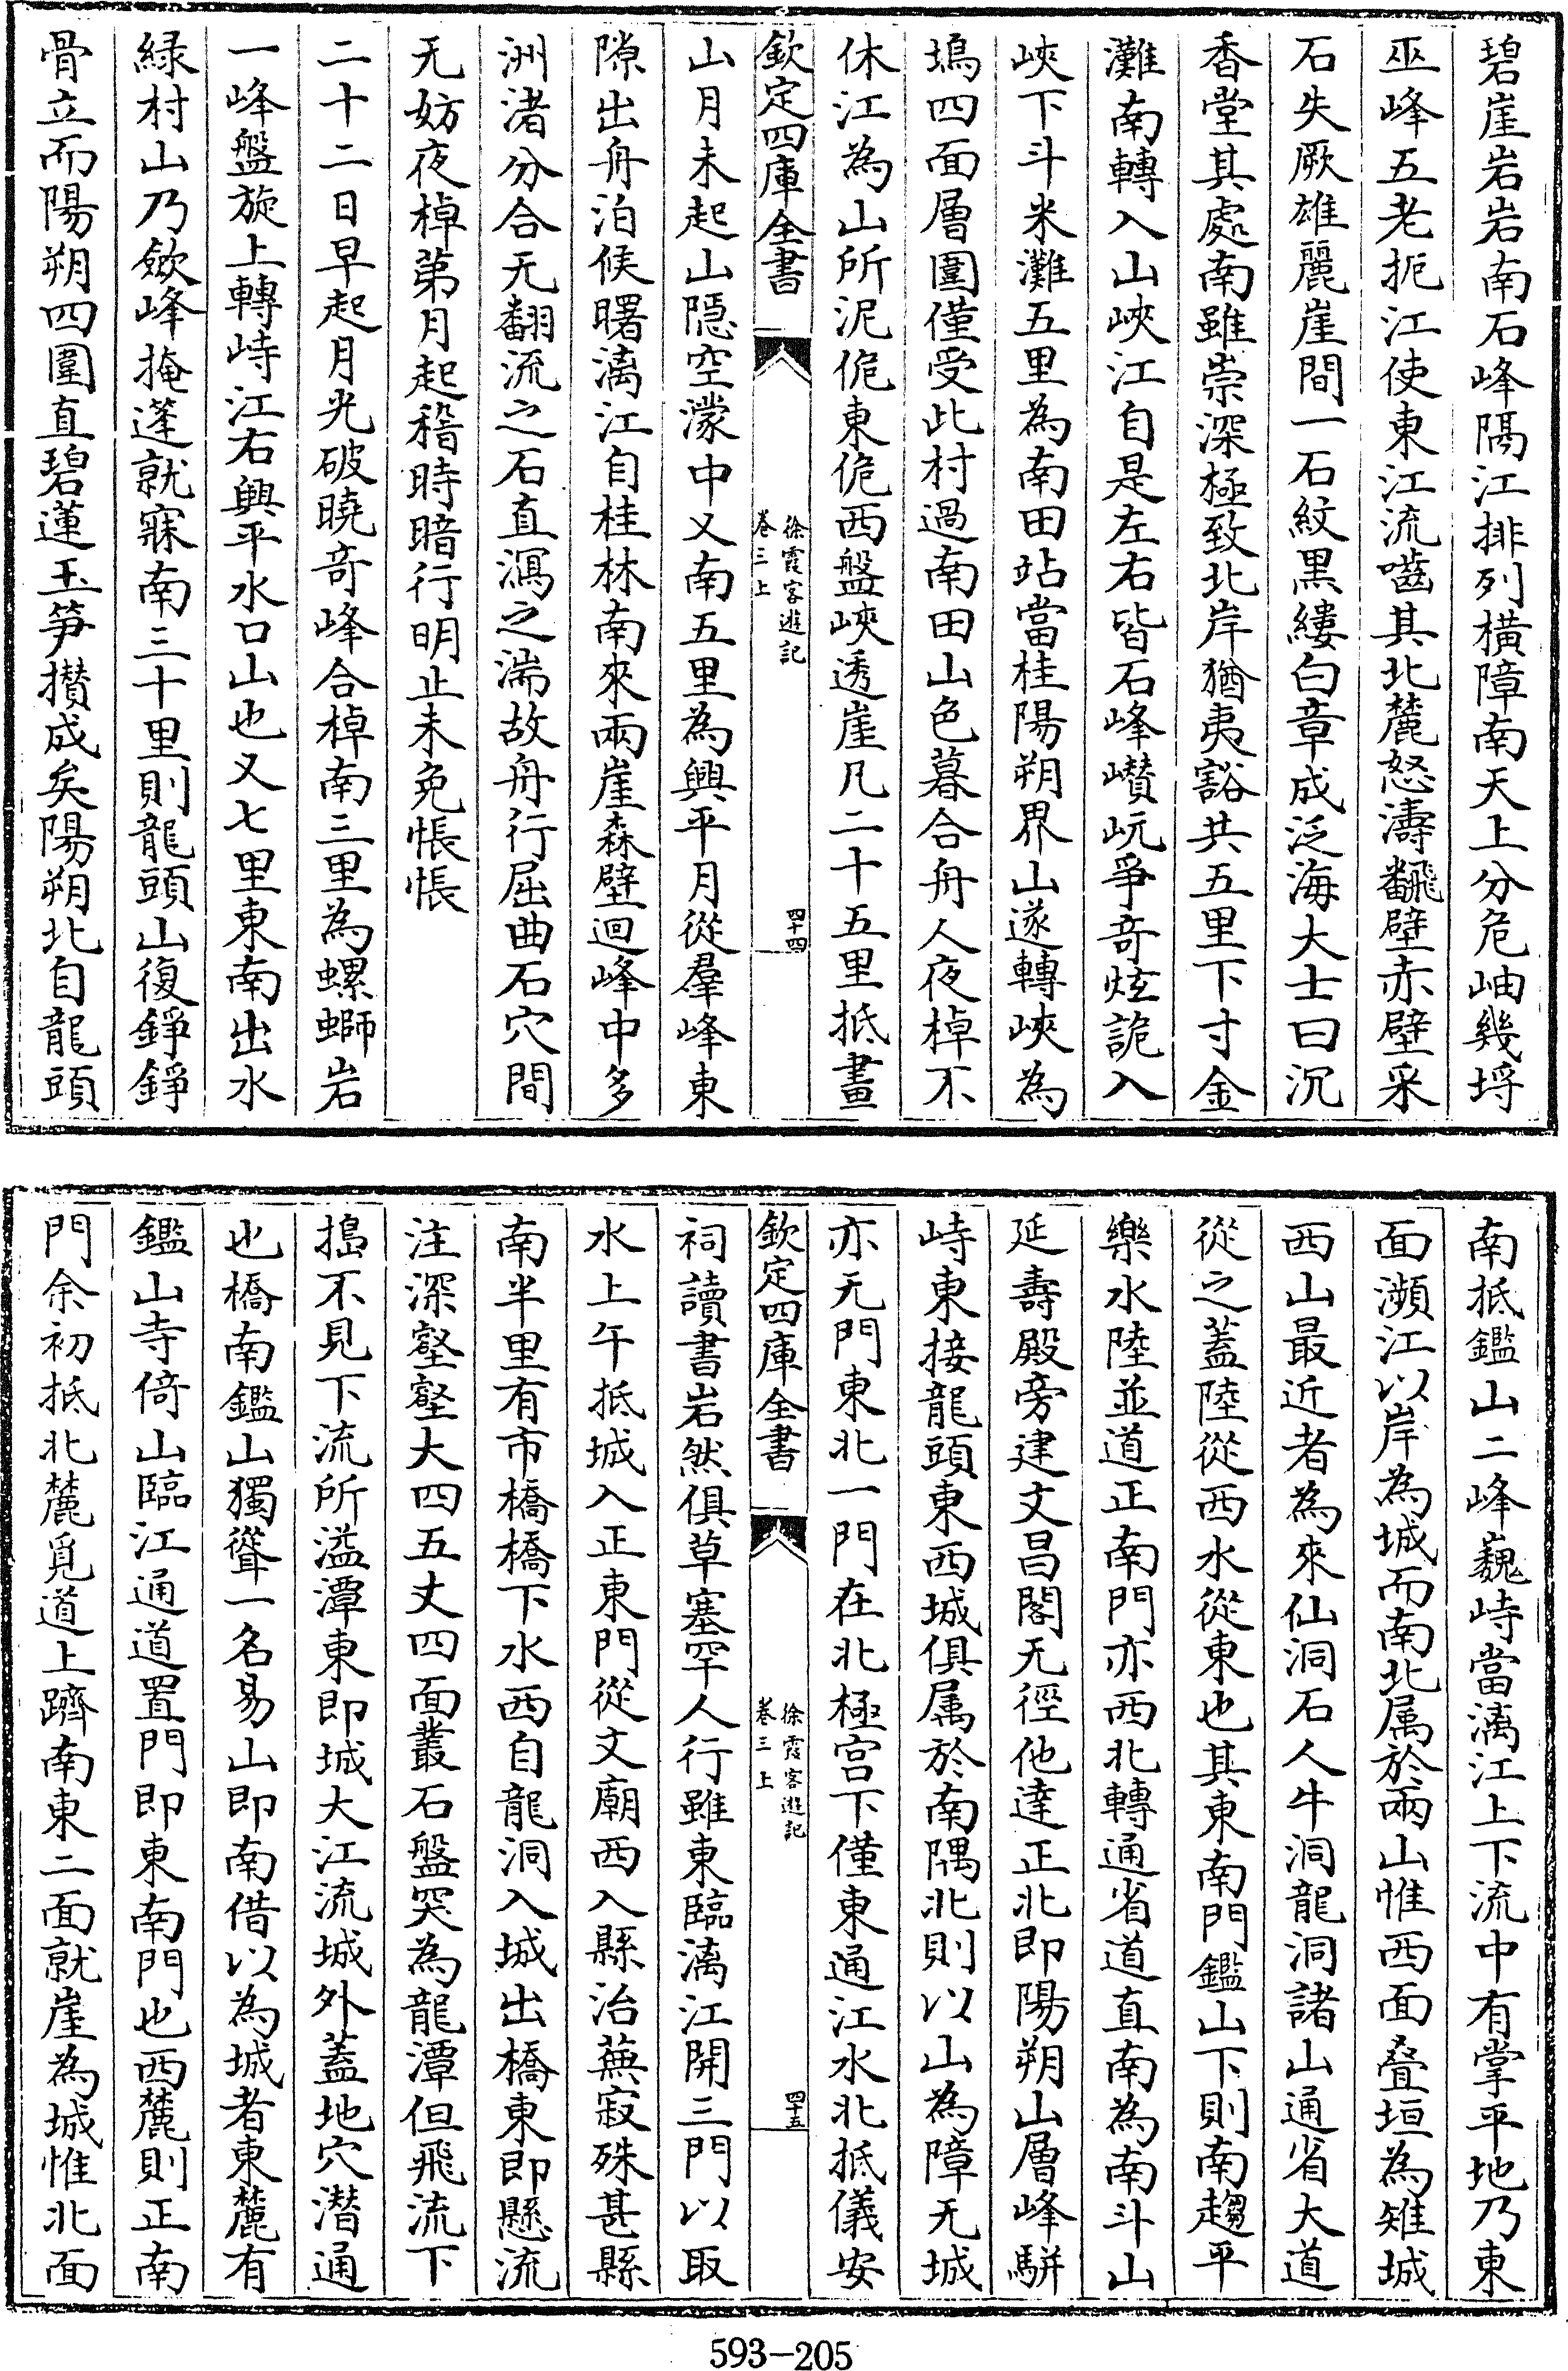 碧崖岩岩南石峰隔江排列橫障南天上分危岫幾埒
巫峰五老扼江使東江流嚙其北麓怒濤飜壁赤壁采
石失厥雄麗崖間一石紋黑縷白章成泛海大士曰沉
香堂其處南雖崇深極致北岸猶夷豁共五里下寸金
灘南轉入山峽江自是左右皆石峰巑岏爭奇炫詭入
峽下斗米灘五里為南田站當桂陽朔界山遂轉峽為
塢四面層圍僅受此村過南田山色暮合舟人夜棹不
休江為山所泥佹東佹西盤峽透崖凡二十五里抵畫
欽定四庫全書
徐霞客遊記
卷三上
四十四
山月未起山隱空濛中又南五里為興平月從羣峰東
隙出舟泊候曙漓江自桂林南來兩崖森壁迴峰中多
洲渚分合无翻流之石直瀉之湍故舟行屈曲石穴間
无妨夜棹第月起稽時暗行明止未免悵悵
二十二日早起月光破曉奇峰合棹南三里為螺螄岩
一峰盤旋上轉峙江右興平水口山也又七里東南出水
緑村山乃斂峰掩蓬就寐南三十里則龍頭山復錚錚
骨立而陽朔四圍直碧蓮玉笋攅成矣陽朔北自龍頭
南抵鑑山二峰巍峙當漓江上下流中有掌平地乃東
面瀕江以岸為城而南北属於兩山惟西面叠垣為雉城
西山最近者為來仙洞石人牛洞龍洞諸山通省大道
從之蓋陸從西水從東也其東南門鑑山下則南趨平
樂水陸並道正南門亦西北轉通省道直南為南斗山
延壽殿旁建文昌閣无徑他達正北即陽朔山層峰駢
峙東接龍頭東西城俱属於南隅北則以山為障无城
亦无門東北一門在北極宫下僅東通江水北抵儀安
欽定四庫全書
徐霞客遊記
卷三上
四十五
祠讀書岩然俱草塞罕人行雖東臨漓江開三門以取
水上午抵城入正東門從文廟西入縣治蕪寂殊甚縣
南半里有市橋橋下水西自龍洞入城出橋東即懸流
注深壑壑大四五丈四面叢石盤突為龍潭但飛流下
搗不見下流所溢潭東即城大江流城外蓋地穴潜通
也橋南鑑山獨聳一名易山即南借以為城者東麓有
鑑山寺倚山臨江通道置門即東南門也西麓則正南
門余初抵北麓覓道上躋南東二面就崖為城惟北面
593-205